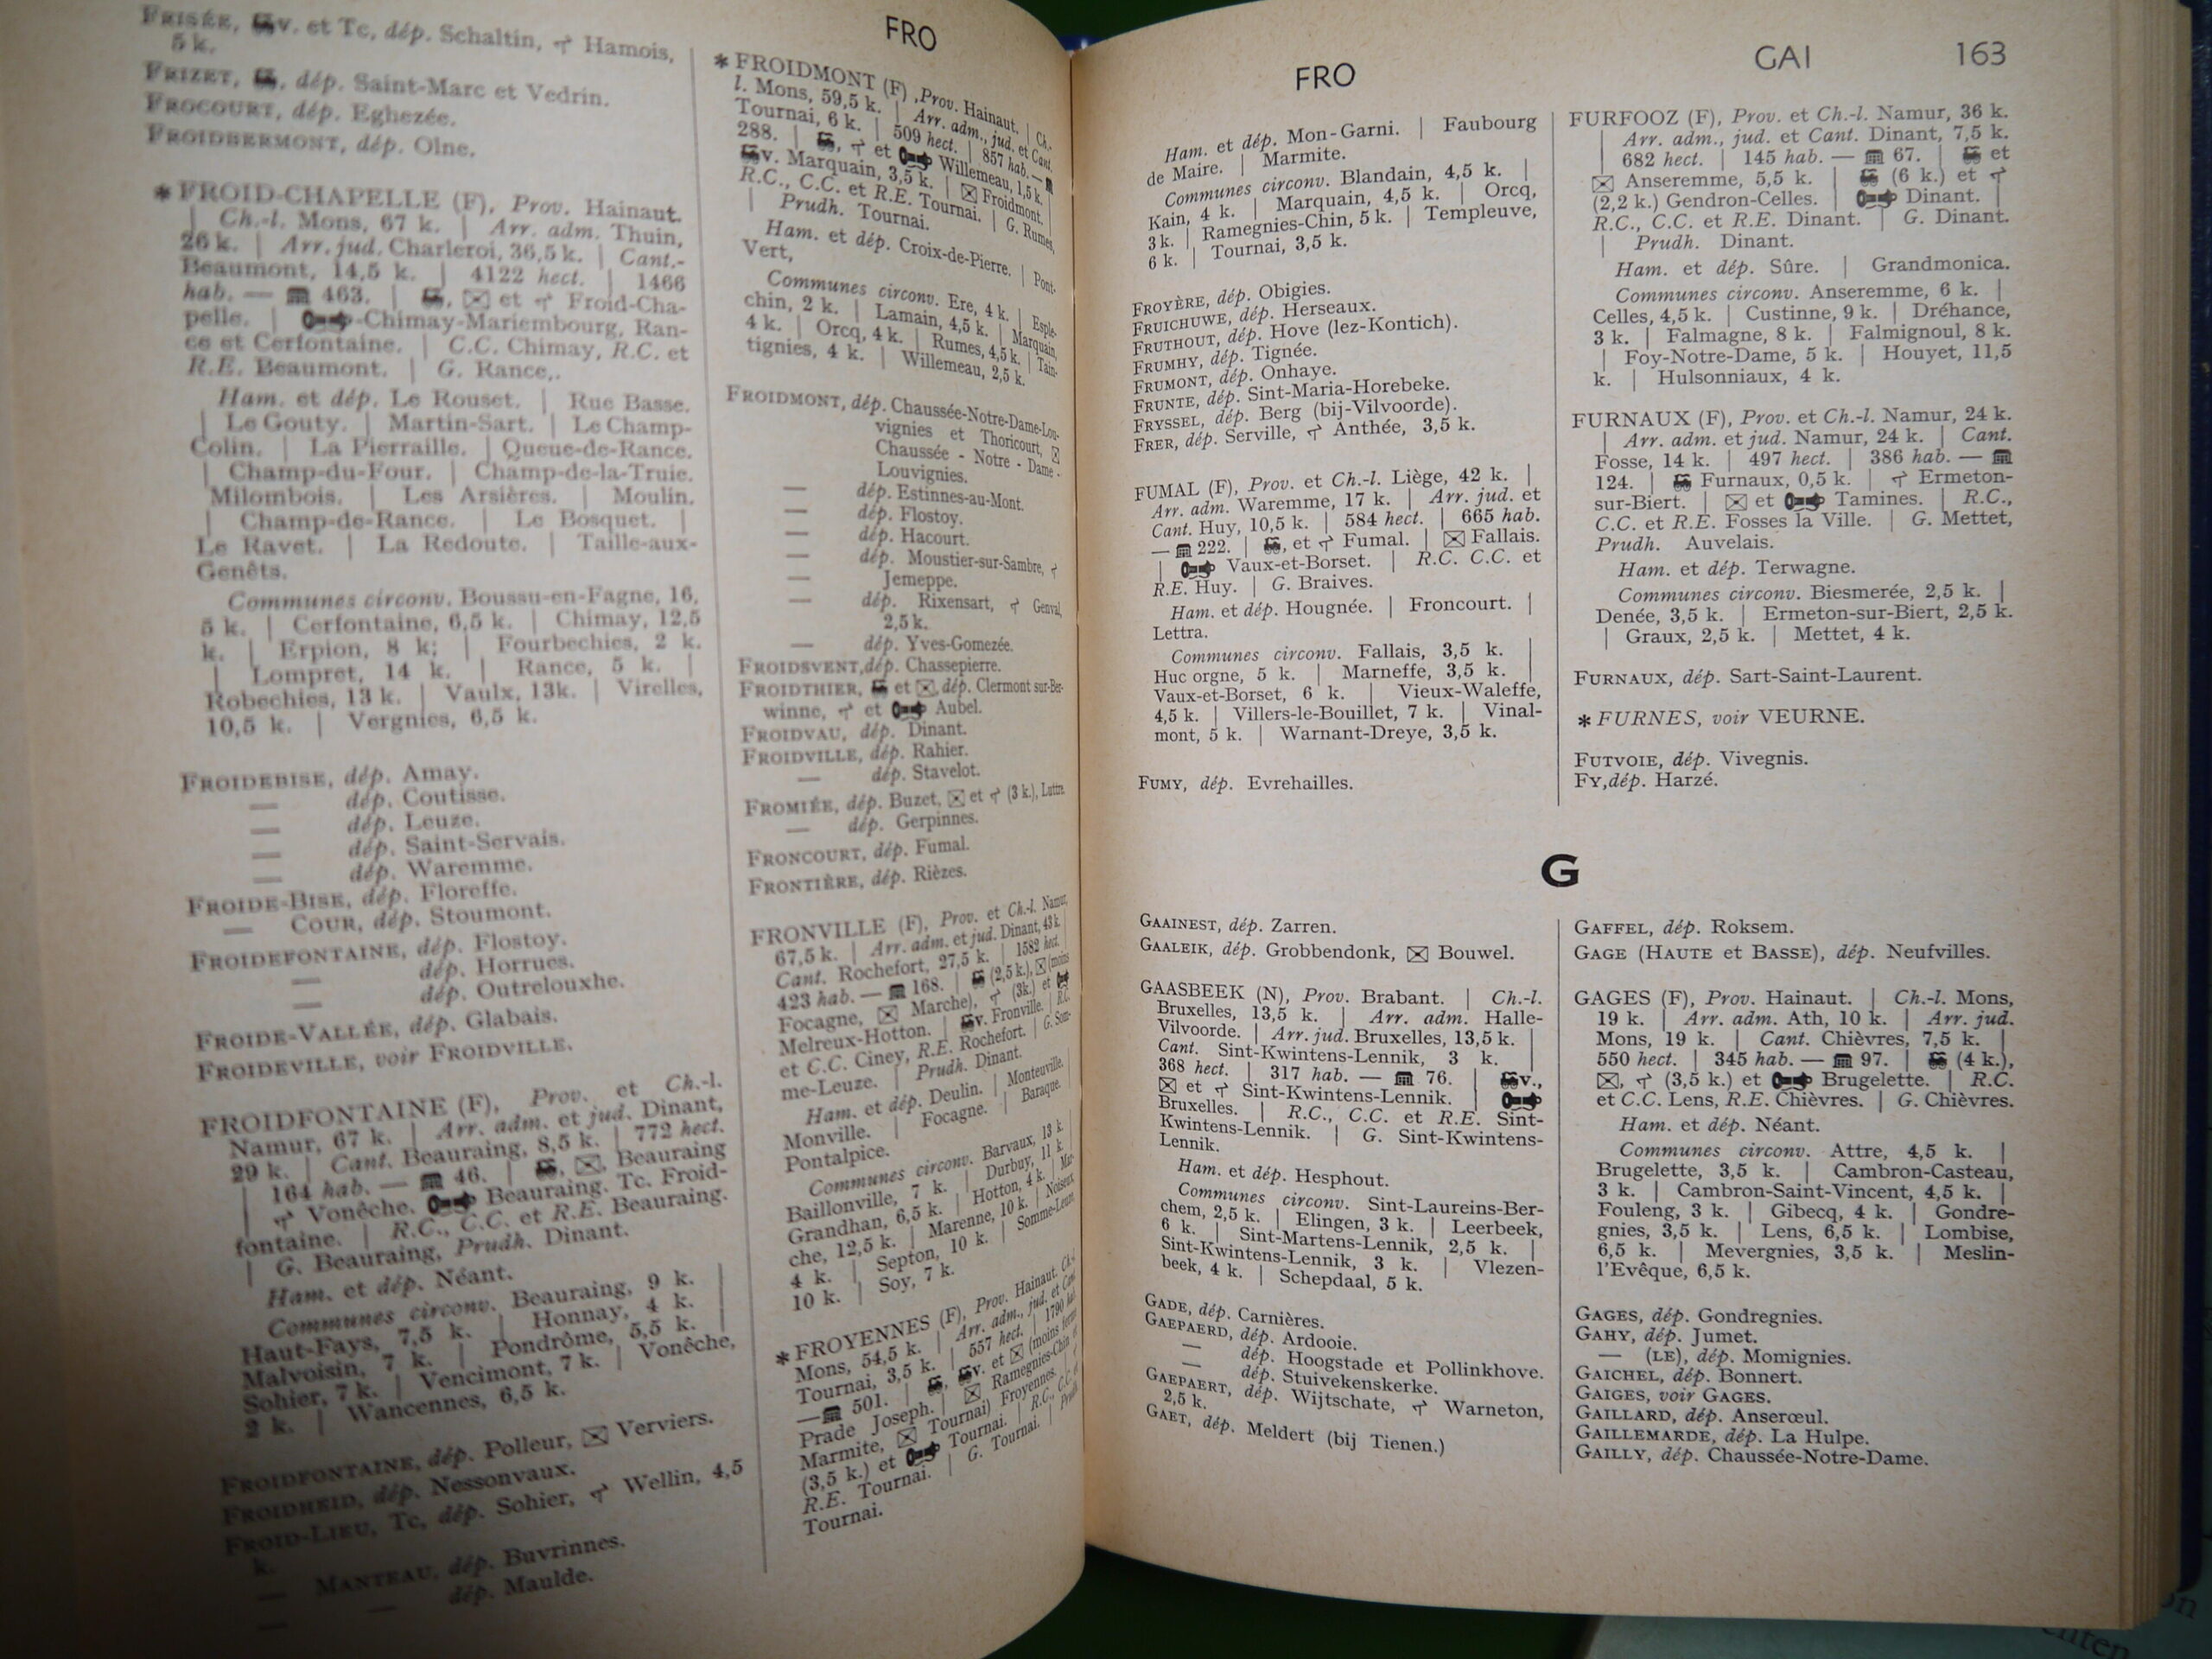 FRISÉE, v. et Tc, dép. Schaltin, Hamois,
5 k.
FRIZET, dép. Saint-Marc et Vedrin.
FROCOURT, dép. Eghezée.
FROIDBERMONT, dép. Olne.
* FROID-CHAPELLE (F), Prov. Hainaut.
| Ch.-l. Mons, 67 k. | Arr. adm. Thuin,
26 k. | Arr. jud. Charleroi, 36,5 k. | Cant.-
Beaumont, 14,5 k. | 4122 hect. | 1466
hab. — 463. | , et Froid-Cha-
pelle. | -Chimay-Mariembourg, Ran-
ce et Cerfontaine. | C.C. Chimay, R.C. et
R.E. Beaumont. | G. Rance,.
Ham. et dép. Le Rouset. | Rue Basse.
| Le Gouty. | Martin-Sart. | Le Champ-
Colin. | La Pierraille. | Queue-de-Rance.
| Champ-du-Four. | Champ-de-la-Truie.
Milombois. | Les Arsières. | Moulin.
| Champ-de-Rance. | Le Bosquet. |
Le Ravet. | La Redoute. | Taille-aux-
Genêts.
Communes circonv. Boussu-en-Fagne, 16,
5 k. | Cerfontaine, 6,5 k. | Chimay, 12,5
k. | Erpion, 8 k; | Fourbechies, 2 k.
| Lompret, 14 k. | Rance, 5 k. |
Robechies, 13 k. | Vaulx, 13k. | Virelles,
10,5 k. | Vergnies, 6,5 k.
FROIDEBISE, dép. Amay.
— dép. Coutisse.
— dép. Leuze.
— dép. Saint-Servais.
— dép. Waremme.
FROIDE-BISE, dép. Floreffe.
— COUR, dép. Stoumont.
FROIDEFONTAINE, dép. Flostoy.
— dép. Horrues.
— dép. Outrelouxhe.
FROIDE-VALLÉE, dép. Glabais.
FROIDEVILLE, voir FROIDVILLE.
FROIDFONTAINE (F), Prov. et Ch.-l.
Namur, 67 k. | Arr. adm. et jud. Dinant,
29 k. | Cant. Beauraing, 8,5 k. | 772 hect.
| 164 hab. — 46. | , , Beauraing
| Vonêche. Beauraing. Tc. Froid-
fontaine. | R.C., C.C. et R.E. Beauraing.
| G. Beauraing, Prudh. Dinant.
Ham. et dép. Néant.
Communes circonv. Beauraing, 9 k. |
Haut-Fays, 7,5 k. | Honnay, 4 k. |
Malvoisin, 7 k. | Pondrôme, 5,5 k. |
Sohier, 7 k. | Vencimont, 7 k. | Vonêche,
2 k. | Wancennes, 6,5 k.
FROIDFONTAINE, dép. Polleur, Verviers.
FROIDHEID, dép. Nessonvaux.
FROID-LIEU, Tc, dép. Sohier, Wellin, 4,5
k.
— MANTEAU, dép. Buvrinnes.
— — dép. Maulde.
FRO
* FROIDMONT (F) ,Prov. Hainaut. | Ch.-
l. Mons, 59,5 k. | Arr. adm., jud. et Cant.
Tournai, 6 k. | 509 hect. | 857 hab. —
288. | , et Willemeau, 1,5 k. |
v. Marquain, 3,5 k. | Froidmont. |
R.C., C.C. et R.E. Tournai. | G. Rumes,
| Prudh. Tournai.
Ham. et dép. Croix-de-Pierre. | Pont-
Vert,
Communes circonv. Ere, 4 k. | Esple-
chin, 2 k. | Lamain, 4,5 k. | Marquain,
4 k. | Orcq, 4 k. | Rumes, 4,5 k. | Tain-
tignies, 4 k. | Willemeau, 2,5 k.
FROIDMONT, dép. Chaussée-Notre-Dame-Lou-
vignies et Thoricourt,
Chaussée - Notre - Dame -
Louvignies.
— dép. Estinnes-au-Mont.
— dép. Flostoy.
— dép. Hacourt.
— dép. Moustier-sur-Sambre,
Jemeppe.
— dép. Rixensart, Genval,
2,5 k.
— dép. Yves-Gomezée.
FROIDSVENT,dép. Chassepierre.
FROIDTHIER, et , dép. Clermont sur-Ber-
winne, et Aubel.
FROIDVAU, dép. Dinant.
FROIDVILLE, dép. Rahier.
— dép. Stavelot.
FROMIÉE, dép. Buzet, et (3 k.), Luttre.
— dép. Gerpinnes.
FRONCOURT, dép. Fumal.
FRONTIÈRE, dép. Rièzes.
FRONVILLE (F), Prov. et Ch.-l. Namur,
67,5 k. | Arr. adm. et jud. Dinant, 43 k.
Cant. Rochefort, 27,5 k. | 1582 hect.
423 hab. — 168. | (2,5 k.), (moins
Focagne, Marche), (3k.) et
Melreux-Hotton. | v. Fronville. | R.C.
et C.C. Ciney, R.E. Rochefort. | G. Som-
me-Leuze. | Prudh. Dinant.
Ham. et dép. Deulin. | Monteuville.
Monville. | Focagne. | Baraque.
Pontalpice.
Communes circonv. Barvaux, 13 k.
Baillonville, 7 k. | Durbuy, 11 k.
Grandhan, 6,5 k. | Hotton, 4 k. | Mar-
che, 12,5 k. | Marenne, 10 k. | Noiseux
4 k. | Septon, 10 k. | Somme-Leuze
10 k. | Soy, 7 k.
* FROYENNES (F), Prov. Hainaut. Ch.-l
Mons, 54,5 k. | Arr. adm., jud. et Cant.
Tournai, 3,5 k. | 557 hect. | 1790 hab.
— 501. | , v. et (moins ferme
Prade Joseph. | Ramegnies-Chin et
Marmite, Tournai) Froyennes. |
(3,5 k.) et Tournai. | R.C., C.C. et
R.E. Tournai. | G. Tournai. | Prudh.
Tournai.
FRO
GAI 163
Ham. et dép. Mon-Garni. | Faubourg
de Maire. | Marmite.
Communes circonv. Blandain, 4,5 k. |
Kain, 4 k. | Marquain, 4,5 k. | Orcq,
3 k. | Ramegnies-Chin, 5 k. | Templeuve,
6 k. | Tournai, 3,5 k.
FROYÈRE, dép. Obigies.
FRUICHUWE, dép. Herseaux.
FRUTHOUT, dép. Hove (lez-Kontich).
FRUMHY, dép. Tignée.
FRUMONT, dép. Onhaye.
FRUNTE, dép. Sint-Maria-Horebeke.
FRYSSEL, dép. Berg (bij-Vilvoorde).
FRER, dép. Serville, Anthée, 3,5 k.
FUMAL (F), Prov. et Ch.-l. Liège, 42 k. |
Arr. adm. Waremme, 17 k. | Arr. jud. et
Cant. Huy, 10,5 k. | 584 hect. | 665 hab.
— 222. | , et Fumal. | Fallais.
| Vaux-et-Borset. | R.C. C.C. et
R.E. Huy. | G. Braives.
Ham. et dép. Hougnée. | Froncourt. |
Lettra.
Communes circonv. Fallais, 3,5 k. |
Huc orgne, 5 k. | Marneffe, 3,5 k. |
Vaux-et-Borset, 6 k. | Vieux-Waleffe,
4,5 k. | Villers-le-Bouillet, 7 k. | Vinal-
mont, 5 k. | Warnant-Dreye, 3,5 k.
FUMY, dép. Evrehailles.
FURFOOZ (F), Prov. et Ch.-l. Namur, 36 k.
| Arr. adm., jud. et Cant. Dinant, 7,5 k.
| 682 hect. | 145 hab. — 67. | et
Anseremme, 5,5 k. | (6 k.) et
(2,2 k.) Gendron-Celles. | Dinant. |
R.C., C.C. et R.E. Dinant. | G. Dinant.
| Prudh. Dinant.
Ham. et dép. Sûre. | Grandmonica.
Communes circonv. Anseremme, 6 k. |
Celles, 4,5 k. | Custinne, 9 k. | Dréhance,
3 k. | Falmagne, 8 k. | Falmignoul, 8 k.
| Foy-Notre-Dame, 5 k. | Houyet, 11,5
k. | Hulsonniaux, 4 k.
FURNAUX (F), Prov. et Ch.-l. Namur, 24 k.
| Arr. adm. et jud. Namur, 24 k. | Cant.
Fosse, 14 k. | 497 hect. | 386 hab. —
124. | Furnaux, 0,5 k. | Ermeton-
sur-Biert. | et Tamines. | R.C.,
C.C. et R.E. Fosses la Ville. | G. Mettet,
Prudh. Auvelais.
Ham. et dép. Terwagne.
Communes circonv. Biesmerée, 2,5 k. |
Denée, 3,5 k. | Ermeton-sur-Biert, 2,5 k.
| Graux, 2,5 k. | Mettet, 4 k.
FURNAUX, dép. Sart-Saint-Laurent.
* FURNES, voir VEURNE.
FUTVOIE, dép. Vivegnis.
FY,dép. Harzé.
G
GAAINEST, dép. Zarren.
GAALEIK, dép. Grobbendonk, Bouwel.
GAASBEEK (N), Prov. Brabant. | Ch.-l.
Bruxelles, 13,5 k. | Arr. adm. Halle-
Vilvoorde. | Arr. jud. Bruxelles, 13,5 k. |
Cant. Sint-Kwintens-Lennik, 3 k. |
368 hect. | 317 hab. — 76. | v.,
et Sint-Kwintens-Lennik. |
Bruxelles. | R.C., C.C. et R.E. Sint-
Kwintens-Lennik. | G. Sint-Kwintens-
Lennik.
Ham. et dép. Hesphout.
Communes circonv. Sint-Laureins-Ber-
chem, 2,5 k. | Elingen, 3 k. | Leerbeek,
6 k. | Sint-Martens-Lennik, 2,5 k. |
Sint-Kwintens-Lennik, 3 k. | Vlezen-
beek, 4 k. | Schepdaal, 5 k.
GADE, dép. Carnières.
GAEPAERD, dép. Ardooie.
— dép. Hoogstade et Pollinkhove.
— dép. Stuivekenskerke.
GAEPAERT, dép. Wijtschate, Warneton,
2,5 k.
GAET, dép. Meldert (bij Tienen.)
GAFFEL, dép. Roksem.
GAGE (HAUTE et BASSE), dép. Neufvilles.
GAGES (F), Prov. Hainaut. | Ch.-l. Mons,
19 k. | Arr. adm. Ath, 10 k. | Arr. jud.
Mons, 19 k. | Cant. Chièvres, 7,5 k. |
550 hect. | 345 hab. — 97. | (4 k.),
, (3,5 k.) et Brugelette. | R.C.
et C.C. Lens, R.E. Chièvres. | G. Chièvres.
Ham. et dép. Néant.
Communes circonv. Attre, 4,5 k. |
Brugelette, 3,5 k. | Cambron-Casteau,
3 k. | Cambron-Saint-Vincent, 4,5 k. |
Fouleng, 3 k. | Gibecq, 4 k. | Gondre-
gnies, 3,5 k. | Lens, 6,5 k. | Lombise,
6,5 k. | Mevergnies, 3,5 k. | Meslin-
l'Evêque, 6,5 k.
GAGES, dép. Gondregnies.
GAHY, dép. Jumet.
— (LE), dép. Momignies.
GAICHEL, dép. Bonnert.
GAIGES, voir GAGES.
GAILLARD, dép. Anserœul.
GAILLEMARDE, dép. La Hulpe.
GAILLY, dép. Chaussée-Notre-Dame.